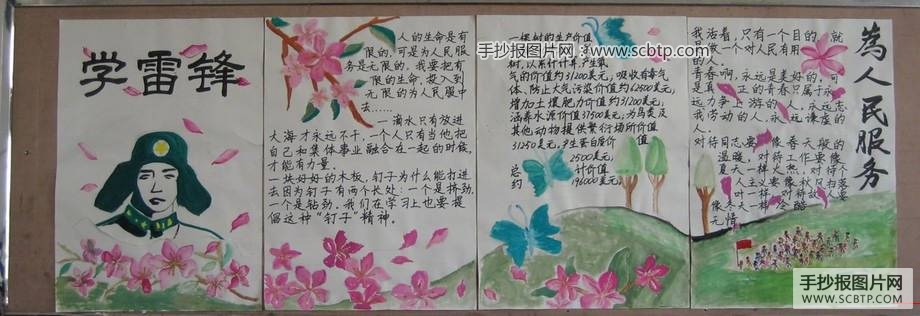 学雷锋
人的生命是有
限的,可是为人民服
务是无限的。我要把有
限的生命,投入到
无限的为人民服中
去……
一滴水只有放进
大海才永远不干,一个人只有当他把
自己和集体事业融合在一起的时候,
才能有力量。
一块好好的木板,钉子为什么能打进
去因为钉子有两个长处:一个是挤劲,
一个是钻劲。我们在学习上也要提
倡这种“钉子”精神。
一棵树的生产价值
手抄报图片网
www.scbtp.com
树,以累计计算,产生氧
气的价值约31200美元,吸收有毒气
体、防止大气污染价值约62500美元,
增加土壤肥力价值约31200美元,
涵养水源价值37500美元;为鸟类及
其他动物提供繁衍场所价值
31250美元,产生蛋白质价值
2500美元,
总计价值
约196000美元
为人民服务
我活着,只有一个目的,就
是做一个对人民有用
的人。
青春啊,永远是美好的,可
是真正的青春只属于永
远力争上游的人,永远忘
我劳动的人,永远谦虚的
人。
对待同志要像春天般的
温暖,对待工作要像
夏天一样火热,对待个
人主义要像秋风扫落
叶一样,对待敌人要
像冬天一样残酷
无情
手抄报图片网
WWW.SCBTP.COM